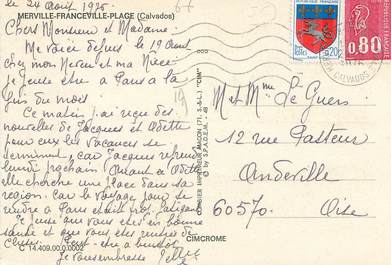 le 24 août 1976
MERVILLE-FRANCEVILLE-PLAGE (Calvados)
Chers Monsieur et Madame,
Me voici depuis le 19 Août
chez mon Neveu et ma Nièce
je pense être à Paris à la
fin du mois
Ce matin j'ai reçu des
nouvelles de Jacques et Odette
pour eux les vacances se
terminent, car Jacques reprend
lundi prochain. Quant à Odette
elle cherche une place dans sa
région. car le voyage pour se
rendre à Paris était trop fatigant
Je pense que vous êtes en bonne
santé et que vous êtes rentrés de
Peut-être à bientôt
Je vous embrasse
C 14.409 00 0 0002
CIMCROME
COMBIER IMPRIMEUR MACON (71, S.-&-L.) "CIM"
© by S.P.A.D.E.M.
REPUBLIQUE FRANÇAISE
0,20
0,80
CALVADOS
67
19
M et Mme Le Guern
12 rue Pasteur
Andeville
60570.
Oise